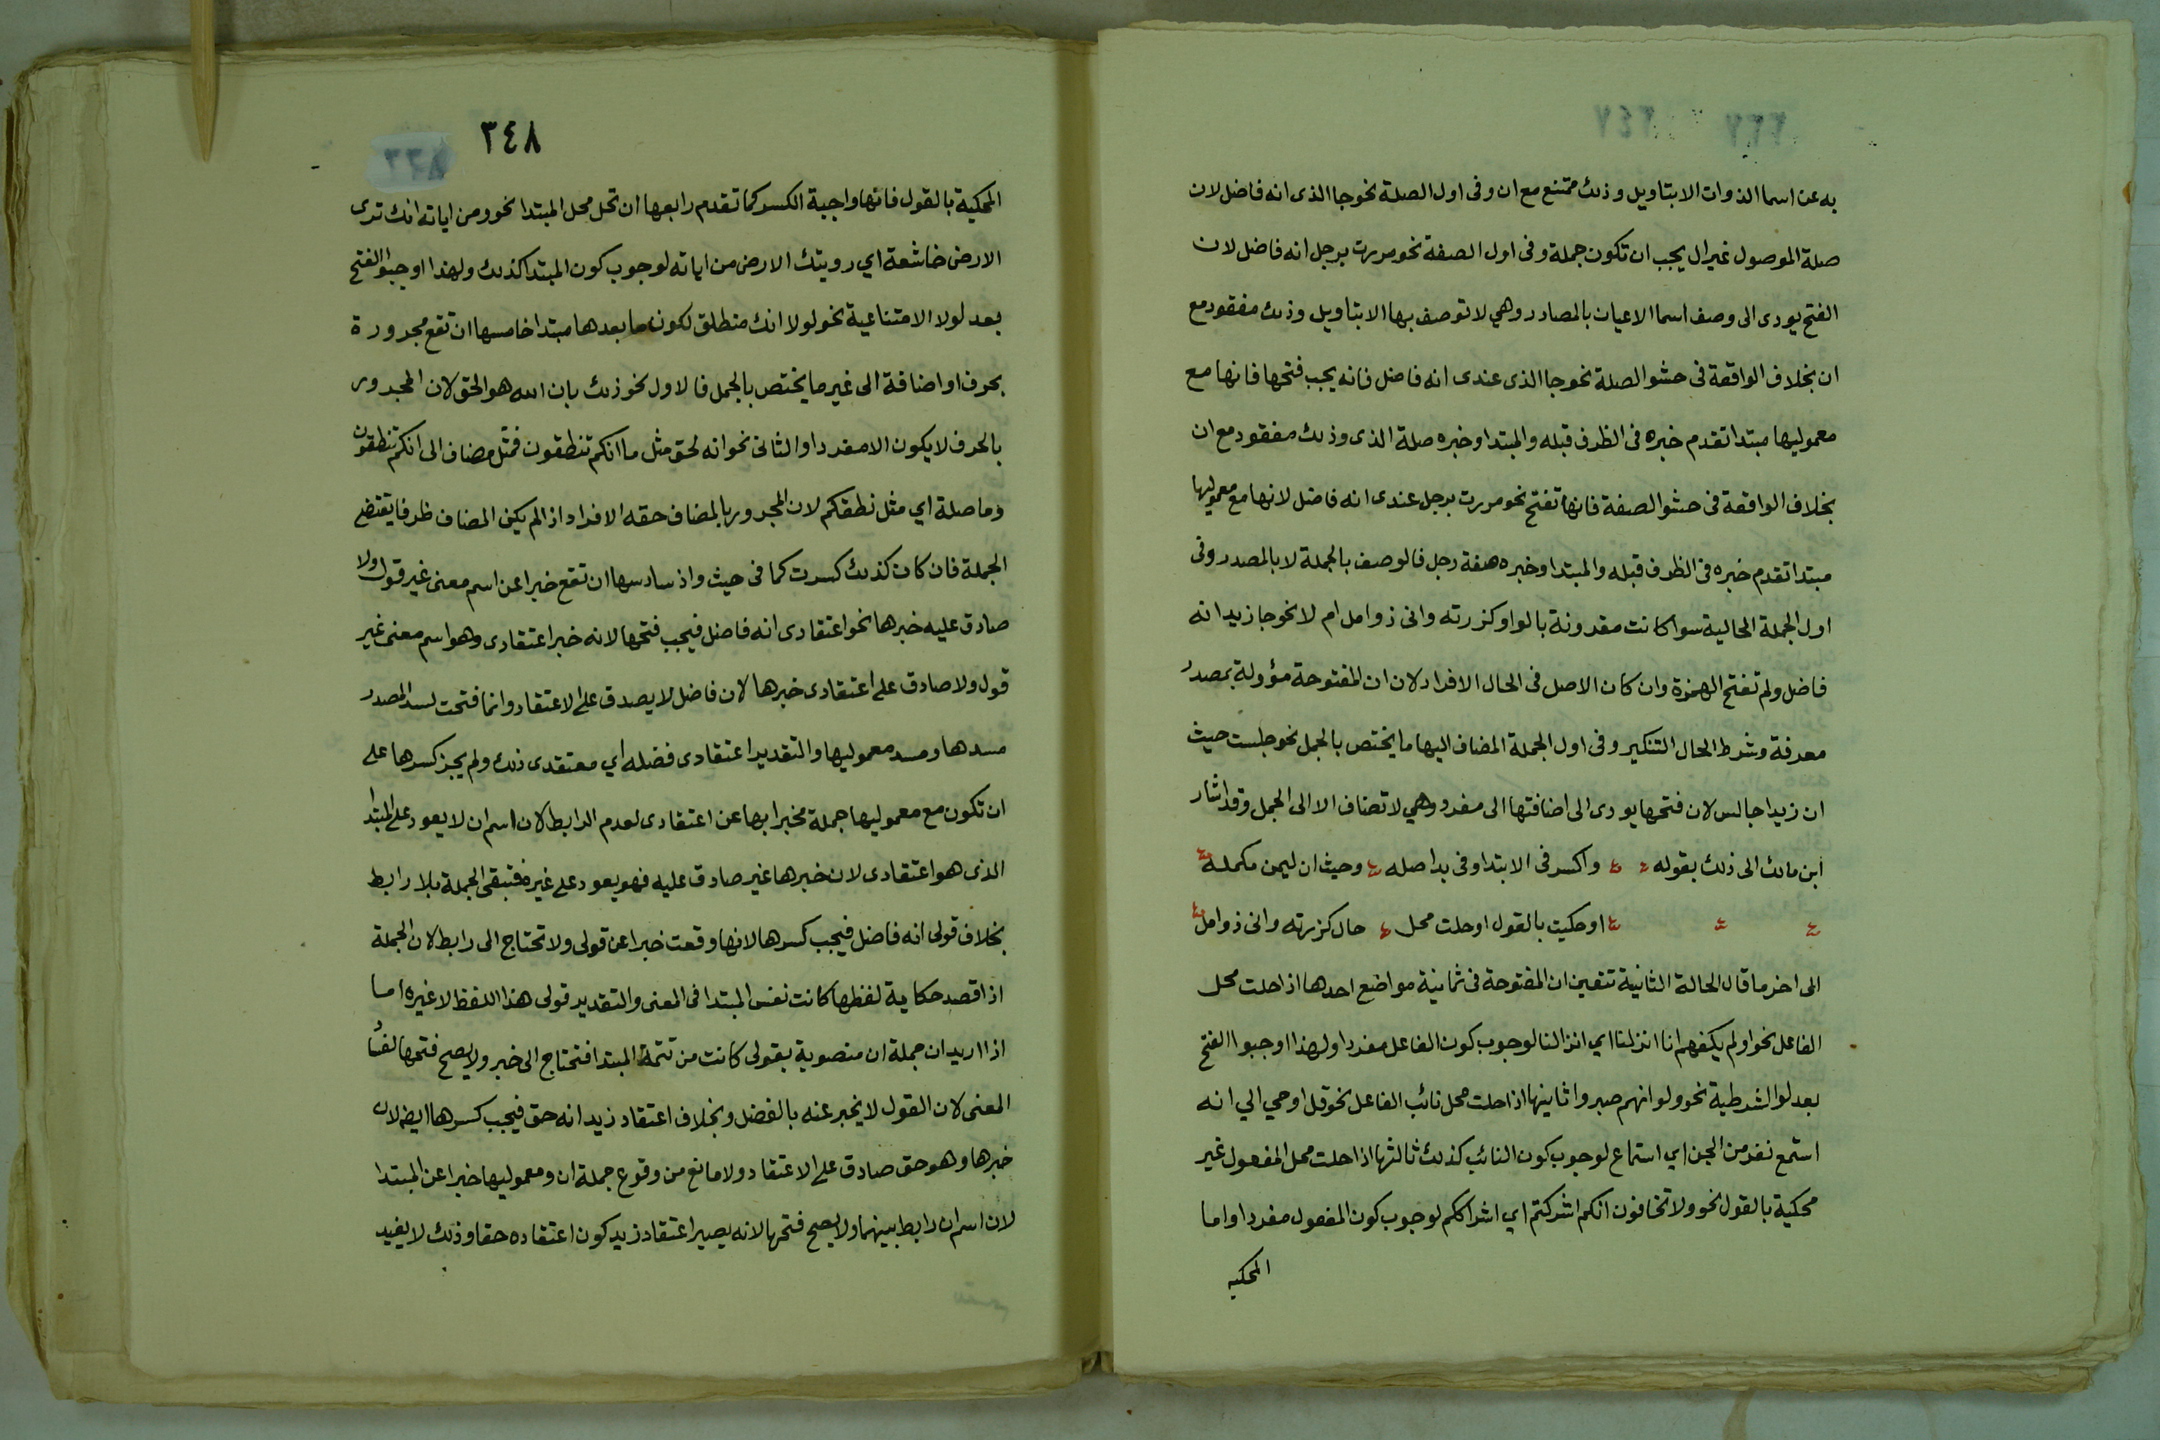 به عن اسما الذوات الا بتاويل وذلك ممتنع مع ان وفى اول الصلة نحو جا الذى انه فاضل لان
صلة الموصول غير ال يجب ان تكون جملة وفى اول الصفة نحو مررت برجل انه فاضل لان
الفتح يودى الى وصف اسما الاعيان بالمصادر وهي لا توصف بها الا بتاويل وذلك مفقود مع
ان بخلاف الواقعة فى حشو الصلة نحو جا الذى عندى انه فاضل فانه يجب فتحها فانها مع
معموليها مبتدا تقدم خبره فى الظرف قبله والمبتدا وخبره صلة الذى وذلك مفقود مع ان
بخلاف الواقعة فى حشو الصفة فانها تفتح نحو مررت برجل عندى انه فاضل لانها مع معموليها
مبتدا تقدم خبره فى الظرف قبله والمبتدا وخبره صفة رجل فالوصف بالجملة لا بالمصدر وفى
اول الجملة الحالية سوا كانت مقرونة بالواو كزرته وانى ذو امل ام لا نحو جا زيد انه
فاضل ولم تفتح الهمزة وان كان الاصل فى الحال الافراد لان ان المفتوحة مؤولة بمصدر
معرفة وشرط الحال التنكير وفى اول الجملة المضاف اليها ما يختص بالجمل نحو جلست حيث
ان زيدا جالس لان فتحها يودى الى اضافتها الى مفرد وهي لا تضاف الا الى الجمل وقد اشار
ابن مالك الى ذلك بقوله واكسر فى الابتدا وفى بدا صله وحيث ان ليمن مكمله
اوحكيت بالقول اوحلت محل حال كزرته وانى ذو امل
الى اخر ما قال الحالة الثانية تتعين ان المفتوحة فى ثمانية مواضع احدها اذا حلت محل
الفاعل نحو اولم يكفهم انا انزلنا اي انزالنا لوجوب كون الفاعل مفردا ولهذا اوجبوا الفتح
بعد لو الشرطية نحو ولو انهم صبروا ثانيها اذا حلت محل نائب الفاعل نحو قل اوحي الي انه
استمع نفر من الجن اي استماع لوجوب كون النائب كذلك ثالثها اذا حلت محل المفعول غير
محكية بالقول نحو ولا تخافون انكم اشركتم اي اشراككم لوجوب كون المفعول مفردا واما
المحكيه
٣٤٨
المحكية بالقول فانها واجبة الكسر كما تقدم رابعها ان تحل محل المبتدا نحو ومن اياته انك ترى
الارض خاشعة اي رويتك الارض من اياته لوجوب كون المبتدا كذلك ولهذا اوجبوا الفتح
بعد لولا الامتناعية نحو لولا انك منطلق لكون ما بعدها مبتدا خامسها ان تقع مجرورة
بحرف او اضافة الى غير ما يختص بالجمل فالاول نحو ذلك بان الله هو الحق لان المجرور
بالحرف لا يكون الا مفردا والثانى نحو انه لحق مثل ما انكم تنطقون فمثل مضاف الى انكم تنطقون
وما صلة اي مثل نطقكم لان المجرور بالمضاف حقه الافراد اذا لم يكن المضاف ظرفا يقتضى
الجملة فان كان كذلك كسرت كما فى حيث واذ سادسها ان تقع خبرا عن اسم معنى غير قول ولا
صادق عليه خبرها نحو اعتقادى انه فاضل فيجب فتحها لانه خبر اعتقادى وهو اسم معنى غير
قول ولا صادق على اعتقادى خبرها لان فاضل لا يصدق على الاعتقاد وانما فتحت لسد المصدر
مسدها ومسد معموليها والتقدير اعتقادى فضله اي معتقدى ذلك ولم يجز كسرها على
ان تكون مع معموليها جملة مخبرا بها عن اعتقادى لعدم الرابط لان اسم ان لا يعود على المبتدا
الذى هو اعتقادى لان خبرها غير صادق عليه فهو يعود على غيره فتبقى الجملة بلا رابط
بخلاف قولى انه فاضل فيجب كسرها لانها وقعت خبرا عن قولى ولا تحتاج الى رابط لان الجملة
اذا قصد حكاية لفظها كانت نفس المبتدا فى المعنى والتقدير قولى هذا اللفظ لا غيره اما
اذا اريد ان جملة ان منصوبة بقولى كانت من تتمة المبتدا فتحتاج الى خبر ولا يصح فتحها لفسا
المعنى لان القول لا يخبر عنه بالفضل وبخلاف اعتقاد زيد انه حق فيجب كسرها ايضا لان
خبرها وهو حق صادق على الاعتقاد ولا مانع من وقوع جملة ان ومعموليها خبرا عن المبتدا
لان اسم ان رابط بينهما ولا يصح فتحها لانه يصير اعتقاد زيد كون اعتقاده حقا وذلك لا يفيد